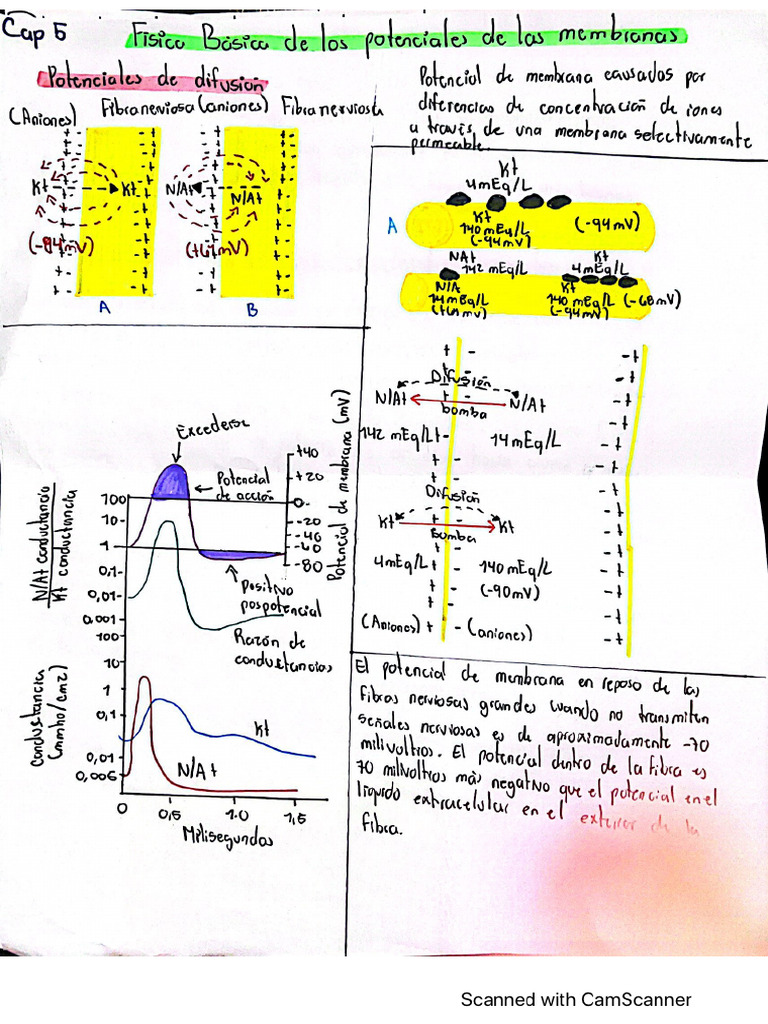 Cap 5
Física Básica de los potenciales de las membranas
Potenciales de difusión
(Aniones) Fibra nerviosa (aniones) Fibra nerviosa
K+ K+ N/A+ N/A+
(-94mV) (+61mV)
A B
Potencial de membrana causados por
diferencias de concentración de iones
a través de una membrana selectivamente
permeable.
K+
4mEq/L
A
K+
140 mEq/L
(-94mV)
(-94mV)
NA+
142 mEq/L
K+
4mEq/L
N/A
14mEq/L
(+61mV)
K+
140 mEq/L
(-94mV)
(-68mV)
Difusión
N/A+ N/A+
bomba
142 mEq/L 14mEq/L
Difusión
K+ K+
Bomba
4mEq/L 140mEq/L
(-90mV)
(Aniones) + - (aniones)
Excederse
Potencial
de acción
Positivo
pospotencial
Razón de
conductancias
N/A+ conductancia
K+ conductancia
100
10
1
0,1
0,01
0.001
+40
+20
0
-20
-40
-60
-80
Potencial de membrana (mV)
Conductancia
(mmho/cm2)
100
10
1
0,1
0,01
0,006
K+
N/A+
0 0,5 1.0 1,5
Milisegundos
El potencial de membrana en reposo de las
fibras nerviosas grandes cuando no transmiten
señales nerviosas es de aproximadamente -70
milivoltios. El potencial dentro de la fibra es
70 milivoltios más negativo que el potencial en el
líquido extracelular en el exterior de la
fibra.
Scanned with CamScanner